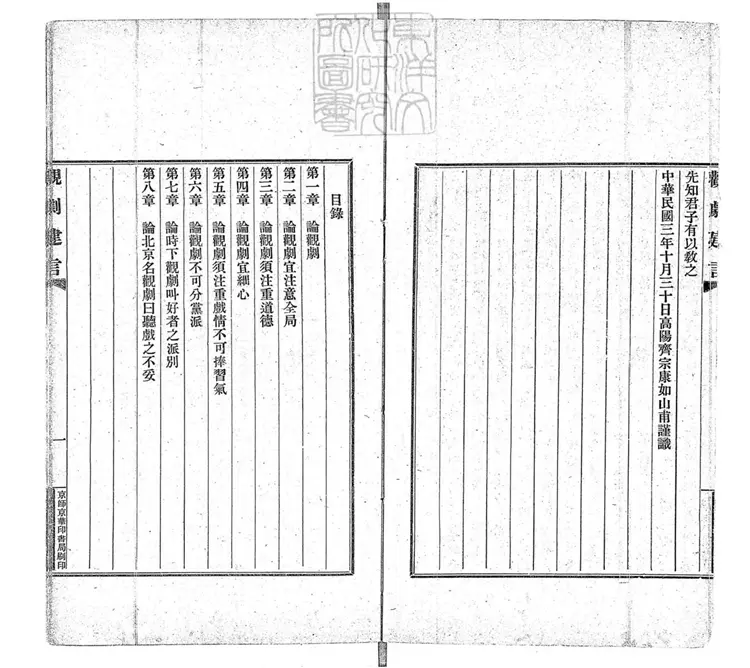 先知君子有以敎之
中華民國三年十月三十日高陽齊宗康如山甫謹識
觀劇建言
目錄
第一章　論觀劇
第二章　論觀劇宜注意全局
第三章　論觀劇須注重道德
第四章　論觀劇宜細心
第五章　論觀劇須注重戲情不可捧習氣
第六章　論觀劇不可分黨派
第七章　論時下觀劇叫好者之派別
第八章　論北京名觀劇曰聽戲之不妥
觀劇建言
一
京師京華印書局刷印
東洋文
化研究
所圖書